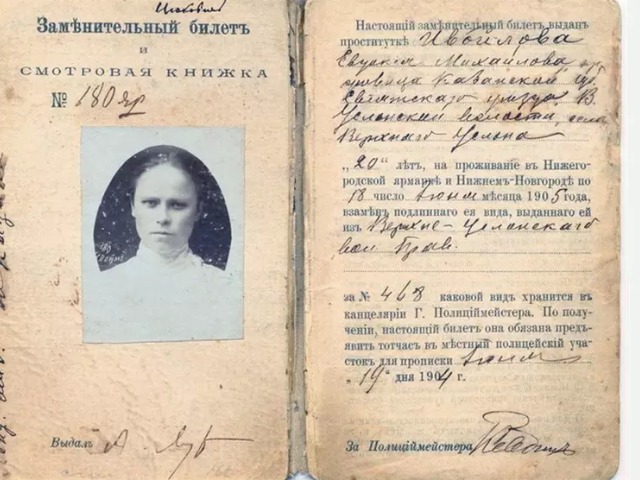 Замѣнительный билетъ
и
СМОТРОВАЯ КНИЖКА
№ 180 яр
Выдалъ
Настоящій замѣнительный билетъ выданъ
проституткѣ Ивойлова
Евдокія Михайлова,
Казанской губ.
уѣзда, В.
Услонской волости, села
Верхняго Услона
„20" лѣтъ, на проживаніе въ Нижего-
родской ярмаркѣ и Нижнемъ-Новгородѣ по
18 число Іюня мѣсяца 1905 года,
взамѣнъ подлиннаго ея вида, выданнаго ей
изъ Верхне-Услонскаго
вол Прав
за № 468 каковой видъ хранится въ
канцеляріи Г. Полиціймейстера. По полу-
ченіи, настоящій билетъ она обязана предъ-
явить тотчасъ въ мѣстный полицейскій уча-
стокъ для прописки Іюня
„19" дня 1904 г.
За Полиціймейстера